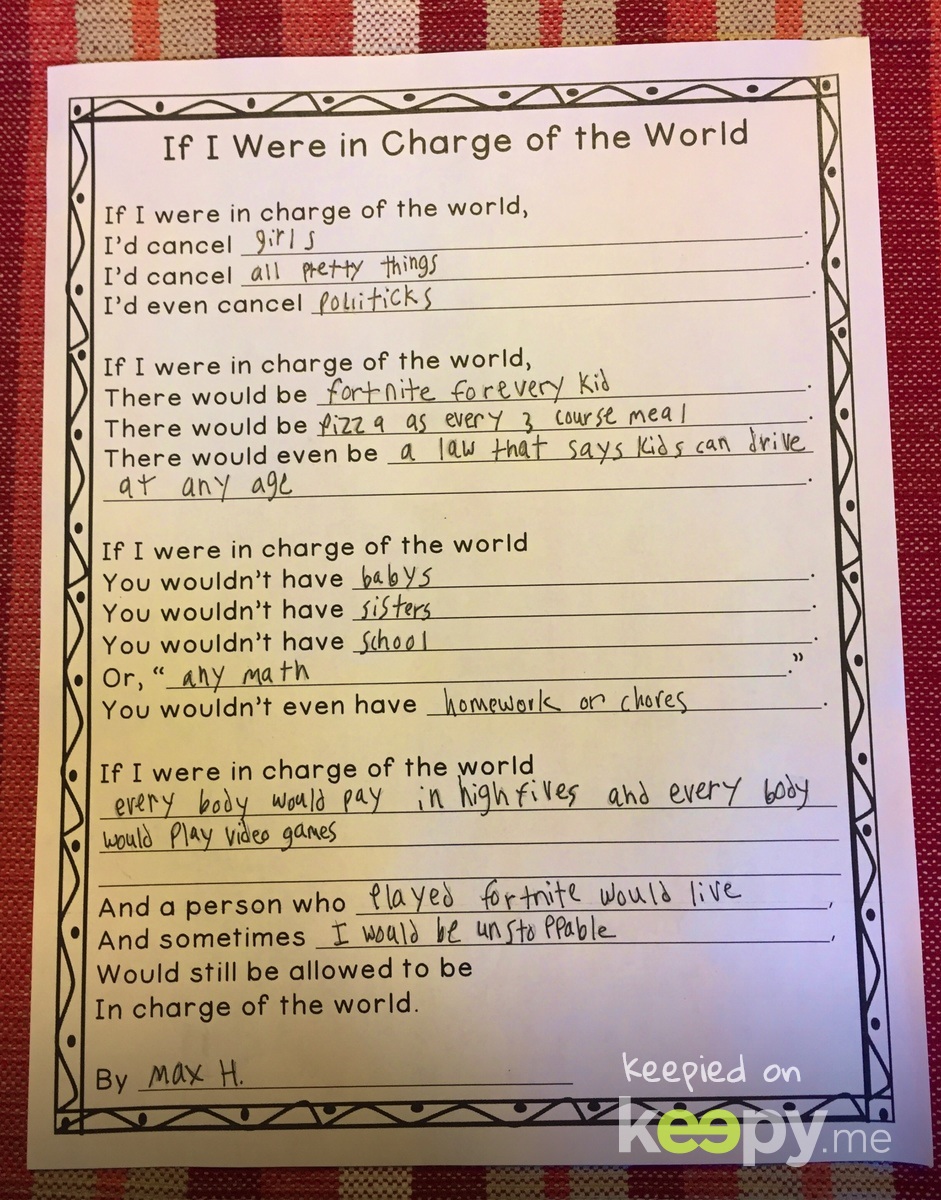 If I Were in Charge of the World
If I were in charge of the world,
I'd cancel girls.
I'd cancel all pretty things.
I'd even cancel politicks.
If I were in charge of the world,
There would be fortnite for every kid.
There would be pizza as every 3 course meal.
There would even be a law that says kids can drive
at any age.
If I were in charge of the world
You wouldn't have babys.
You wouldn't have sisters.
You wouldn't have school.
Or, "any math."
You wouldn't even have homework or chores.
If I were in charge of the world
every body would pay in high fives and every body
would Play video games
And a person who Played fortnite would live,
And sometimes I would be unstoppable,
Would still be allowed to be
In charge of the world.
By Max H.
keepied on
keepy.me